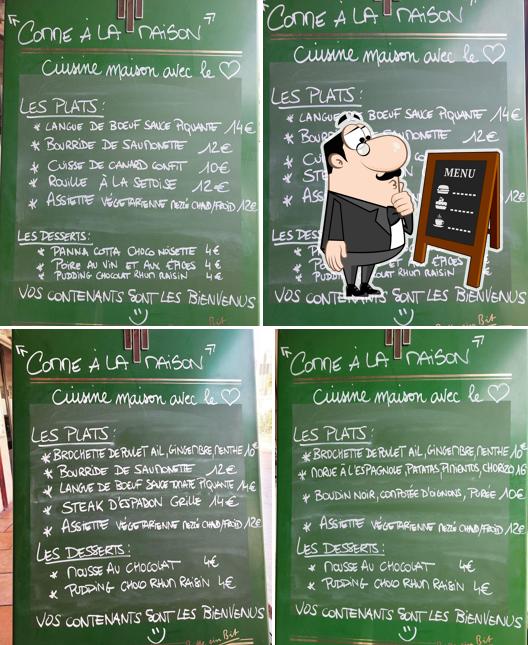 "COMME À LA MAISON"
Cuisine maison avec le
LES PLATS :
* LANGUE DE BOEUF SAUCE PIQUANTE 14€
* BOURRIDE DE SAUMONETTE 12€
* CUISSE DE CANARD CONFIT 10€
* ROUILLE À LA SETOISE 12€
* ASSIETTE VÉGETARIENNE MEZZÉ CHAUD/FROID 12€
LES DESSERTS :
* PANNA COTTA CHOCO NOISETTE 4€
* POIRE AU VIN ET AUX ÉPICES 4€
* PUDDING CHOCOLAT RHUM RAISIN 4€
VOS CONTENANTS SONT LES BIENVENUS
"COMME À LA MAISON"
Cuisine maison avec le
LES PLATS :
* BOEUF SAUCE PIQUANTE 14€
* 12€
*
*
*
MENU
*
* ÉPICES 4€
* RHUM RAISIN 4€
VOS CONTENANTS SONT LES BIENVENUS
"COMME À LA MAISON"
Cuisine maison avec le
LES PLATS :
* BROCHETTE DE POULET AIL, GINGEMBRE, MENTHE 10€
* BOURRIDE DE SAUMONETTE 12€
* LANGUE DE BOEUF SAUCE TOMATE PIQUANTE 14€
* STEAK D'ESPADON GRILLÉ 14€
* ASSIETTE VÉGETARIENNE MEZZÉ CHAUD/FROID 12€
LES DESSERTS :
* MOUSSE AU CHOCOLAT 4€
* PUDDING CHOCO RHUM RAISIN 4€
VOS CONTENANTS SONT LES BIENVENUS
"COMME À LA MAISON"
Cuisine maison avec le
LES PLATS :
* BROCHETTE DE POULET AIL, GINGEMBRE, MENTHE 10€
* MORUE À L'ESPAGNOLE, PATATAS, PIMENTOS, CHORIZO 16
* BOUDIN NOIR, COMPOTÉE D'OIGNONS, PURÉE 10€
* ASSIETTE VÉGETARIENNE MEZZÉ CHAUD/FROID 12€
LES DESSERTS :
* MOUSSE AU CHOCOLAT 4€
* PUDDING CHOCO RHUM RAISIN 4€
VOS CONTENANTS SONT LES BIENVENUS